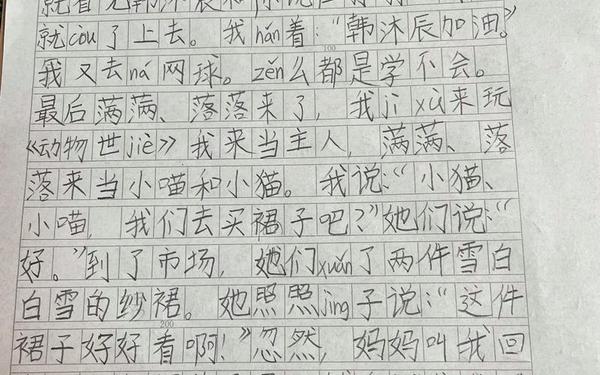 就看见韩沐辰和
就còu了上去。我hǎn着：“韩沐辰加油。”
100
我又去ná网球。zěn么都是学不会。
最后满满、落落来了，我jì xù来玩
《动物世jiè》我来当主人，满满、落
落来当小喵和小猫。我说：“小猫、
小喵，我们去买裙子吧？”她们说：“
好。”到了市场，她们xuǎn了两件雪白
白雪的纱裙。她照照jìng子说：“这件
200
裙子好好看啊！”忽然，妈妈叫我回